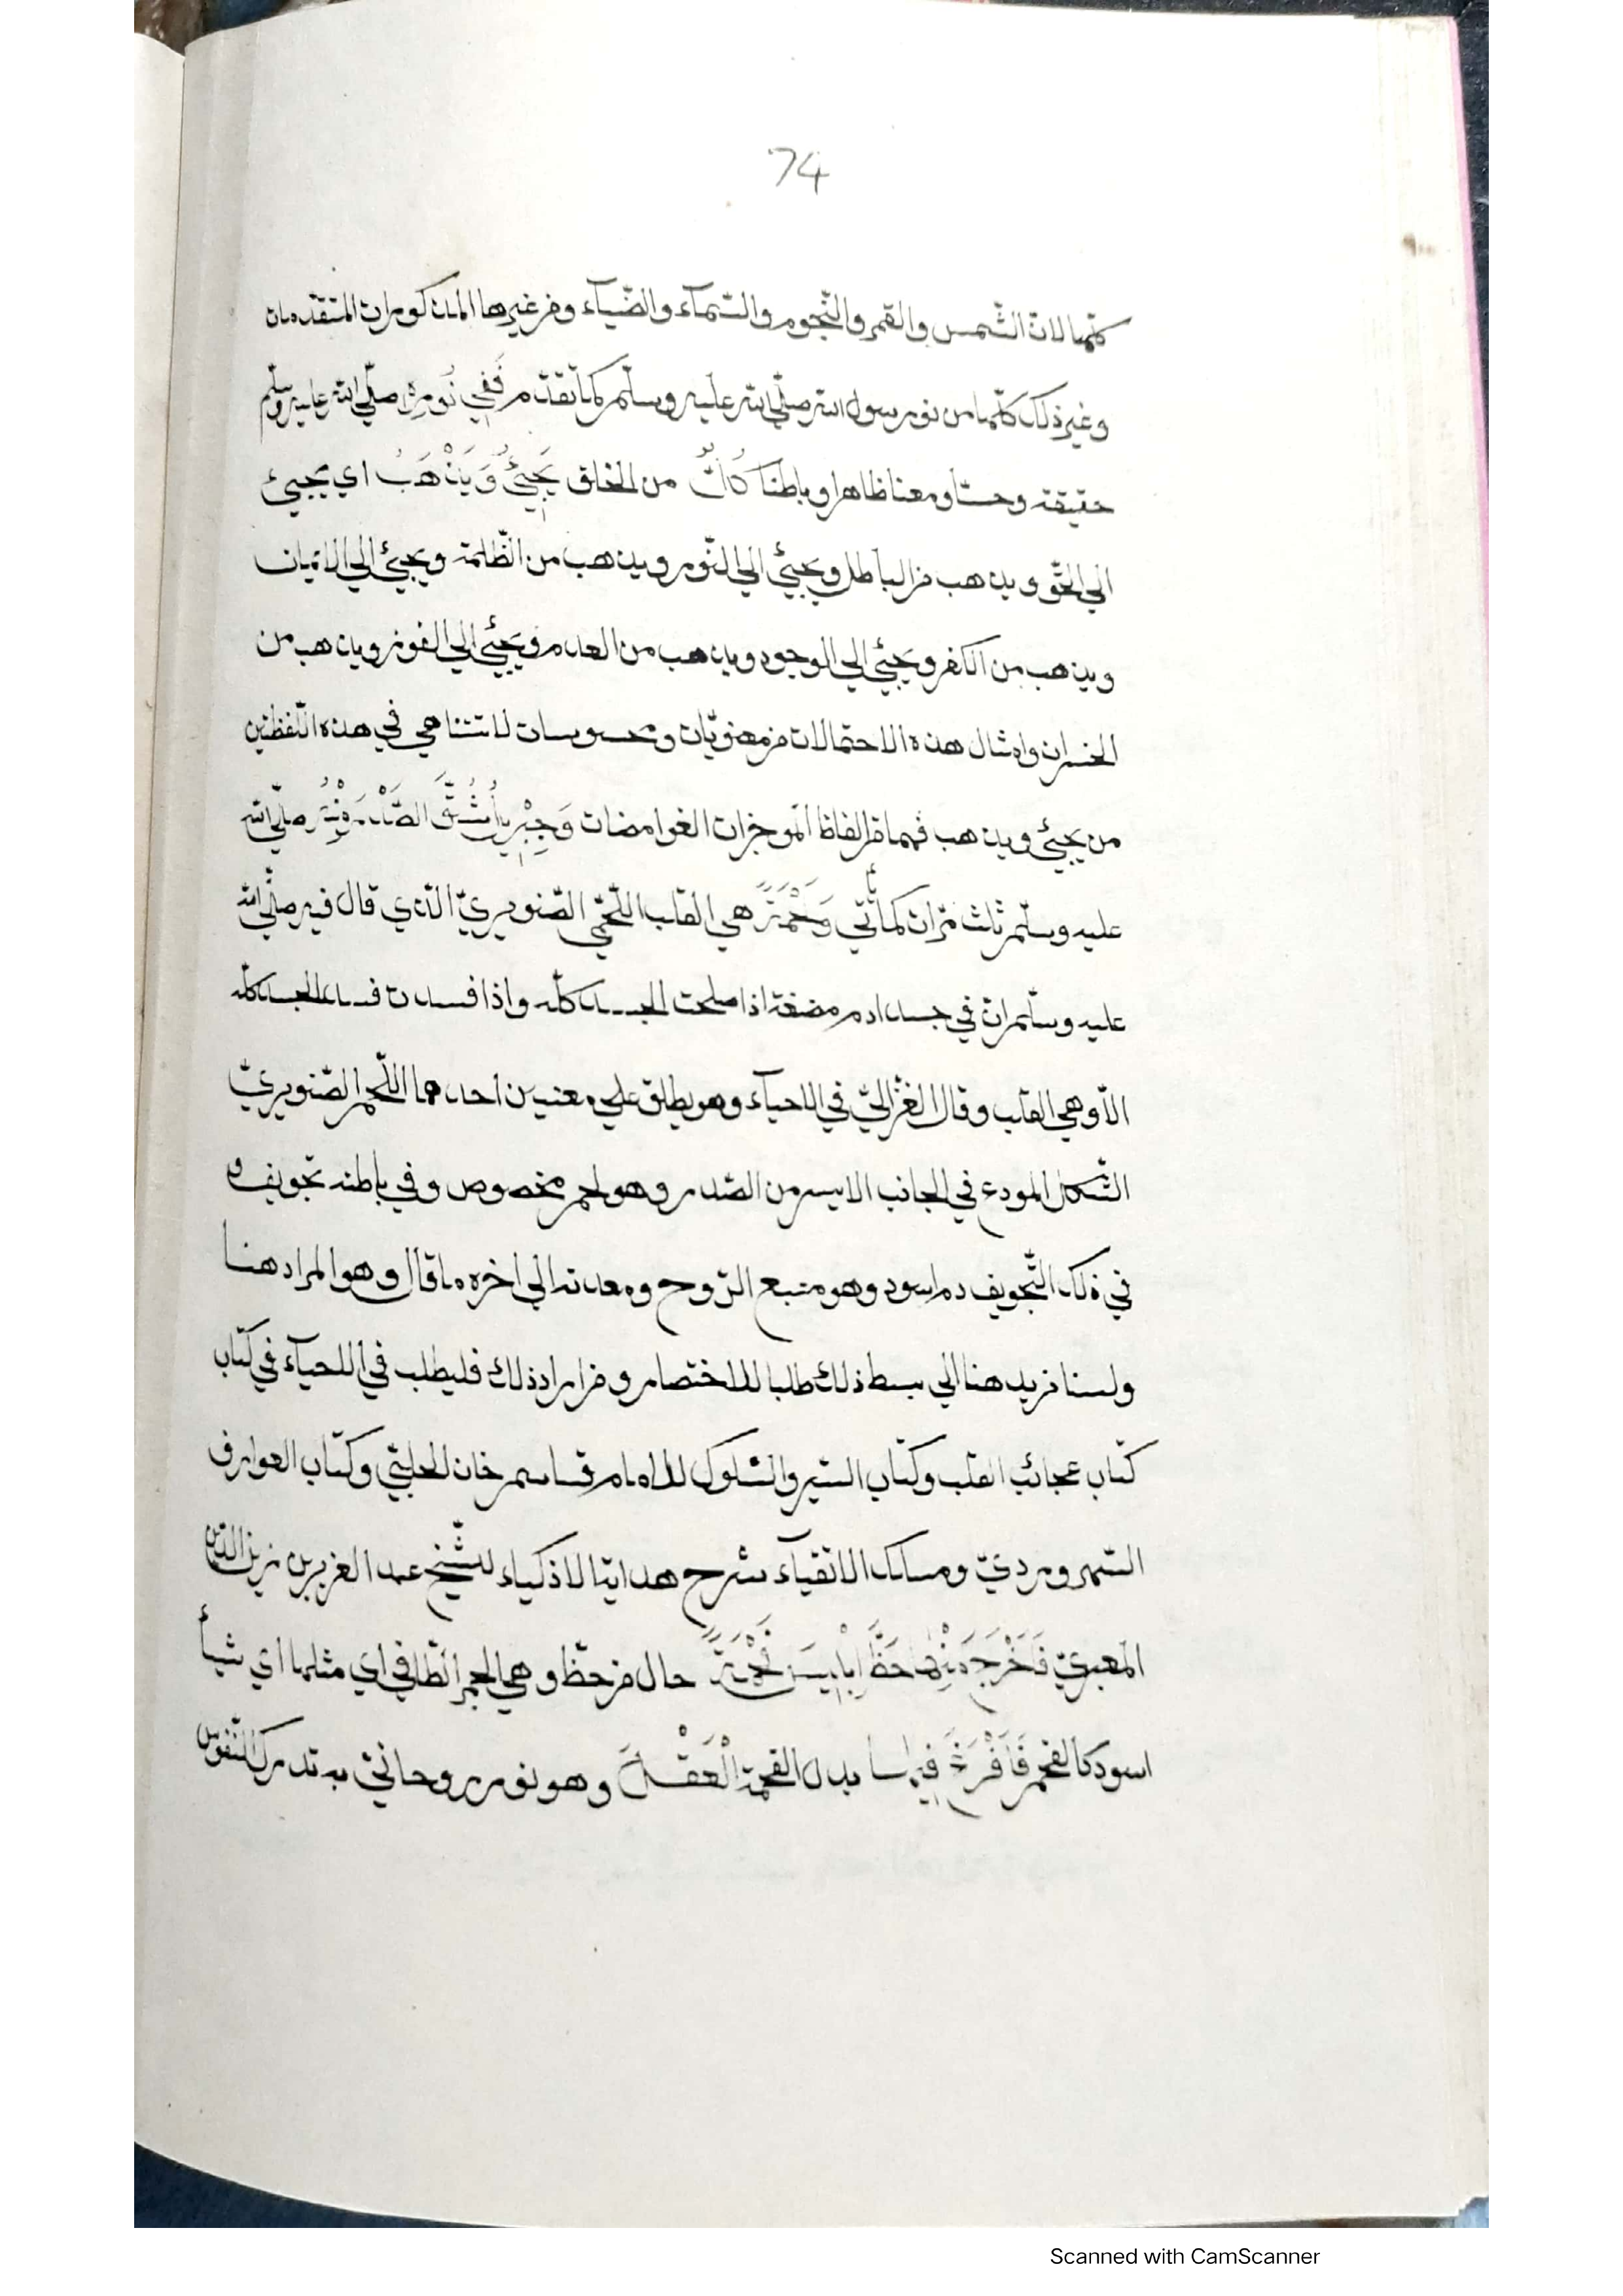 74
كلّها لانّ الشّمس والقمر والنّجوم والسّمآء والضّيآء ومن غيرها المذكورات المتقدّمات
وغير ذلك كلّها من نور رسول الله صلّي الله عليه وسلّم كما تقدّم فَفِي نُورِهِ صلّي الله عليه وسلّم
حقيقة وحسّا ومعنا ظاهرا وباطنا كَانَ من الخلق يَجِيْئُ وَيَذْهَبُ اي يجيئ
الي الحقّ ويذهب من الباطل ويجيئ الي النّور ويذهب من الظّلمة ويجيئ الي الايمان
ويذهب من الكفر ويجيئ الي الوجود ويذهب من العدم ويجيئ الي الفوز ويذهب من
الخسران وامثال هذه الاحتمالات من معنويّات ومحسوسات لا تتناهي في هذه اللّفظين
من يجيئ ويذهب فهما من الفاظ الموجزات الغوامضات وَجِبْرِيلُ شَقَّ الصَّدْرَ مِنْهُ صلّي الله
عليه وسلّم ثلث مرّات كما تأتي وَلَحْمَةً هي القلب اللّحميّ الصّنوبريّ الّذي قال فيه صلّي الله
عليه وسلّم انّ في جسد ادم مضغة اذا صلحت الجسد كلّه واذا فسدت فسد الجسد كلّه
الّا وهي القلب وقال الغزّاليّ في الاحيآء وهو يطلق علي معنيين احدهما اللّحم الصّنوبريّ
الشّكل المودع في الجانب الايسر من الصّدر وهو لحم مخصوص وفي باطنه تجويف و
في ذلك التّجويف دم اسود وهو منبع الرّوح ومعدنه الي اخره ما قال وهو المراد هنا
ولسنا نريد هنا الي بسط ذلك طلبا للاختصار ومن اراد ذلك فليطلب في اللحيآء في كتاب
كتاب عجائب القلب وكتاب السّير والسّلوك للامام قاسم خان الحلبيّ وكتاب العوارف
السّهرورديّ ومسالك الاتقيآء شرح هداية الاذكياء للشّيخ عبد العزيز بن زين الدّين
المعبريّ فَاَخْرَجَ مِنْهَا حَظَّ اِبْلِيسَ فَحْمَةً حال من حظّ وهي الجمر الطّافي اي مثلها اي شيأ
اسود كالفحم فَاَفْرَغَ فِيهَا بدل الفحمة الْعَقْلَ وهو نور روحانيّ به تدرك النّفوس
Scanned with CamScanner